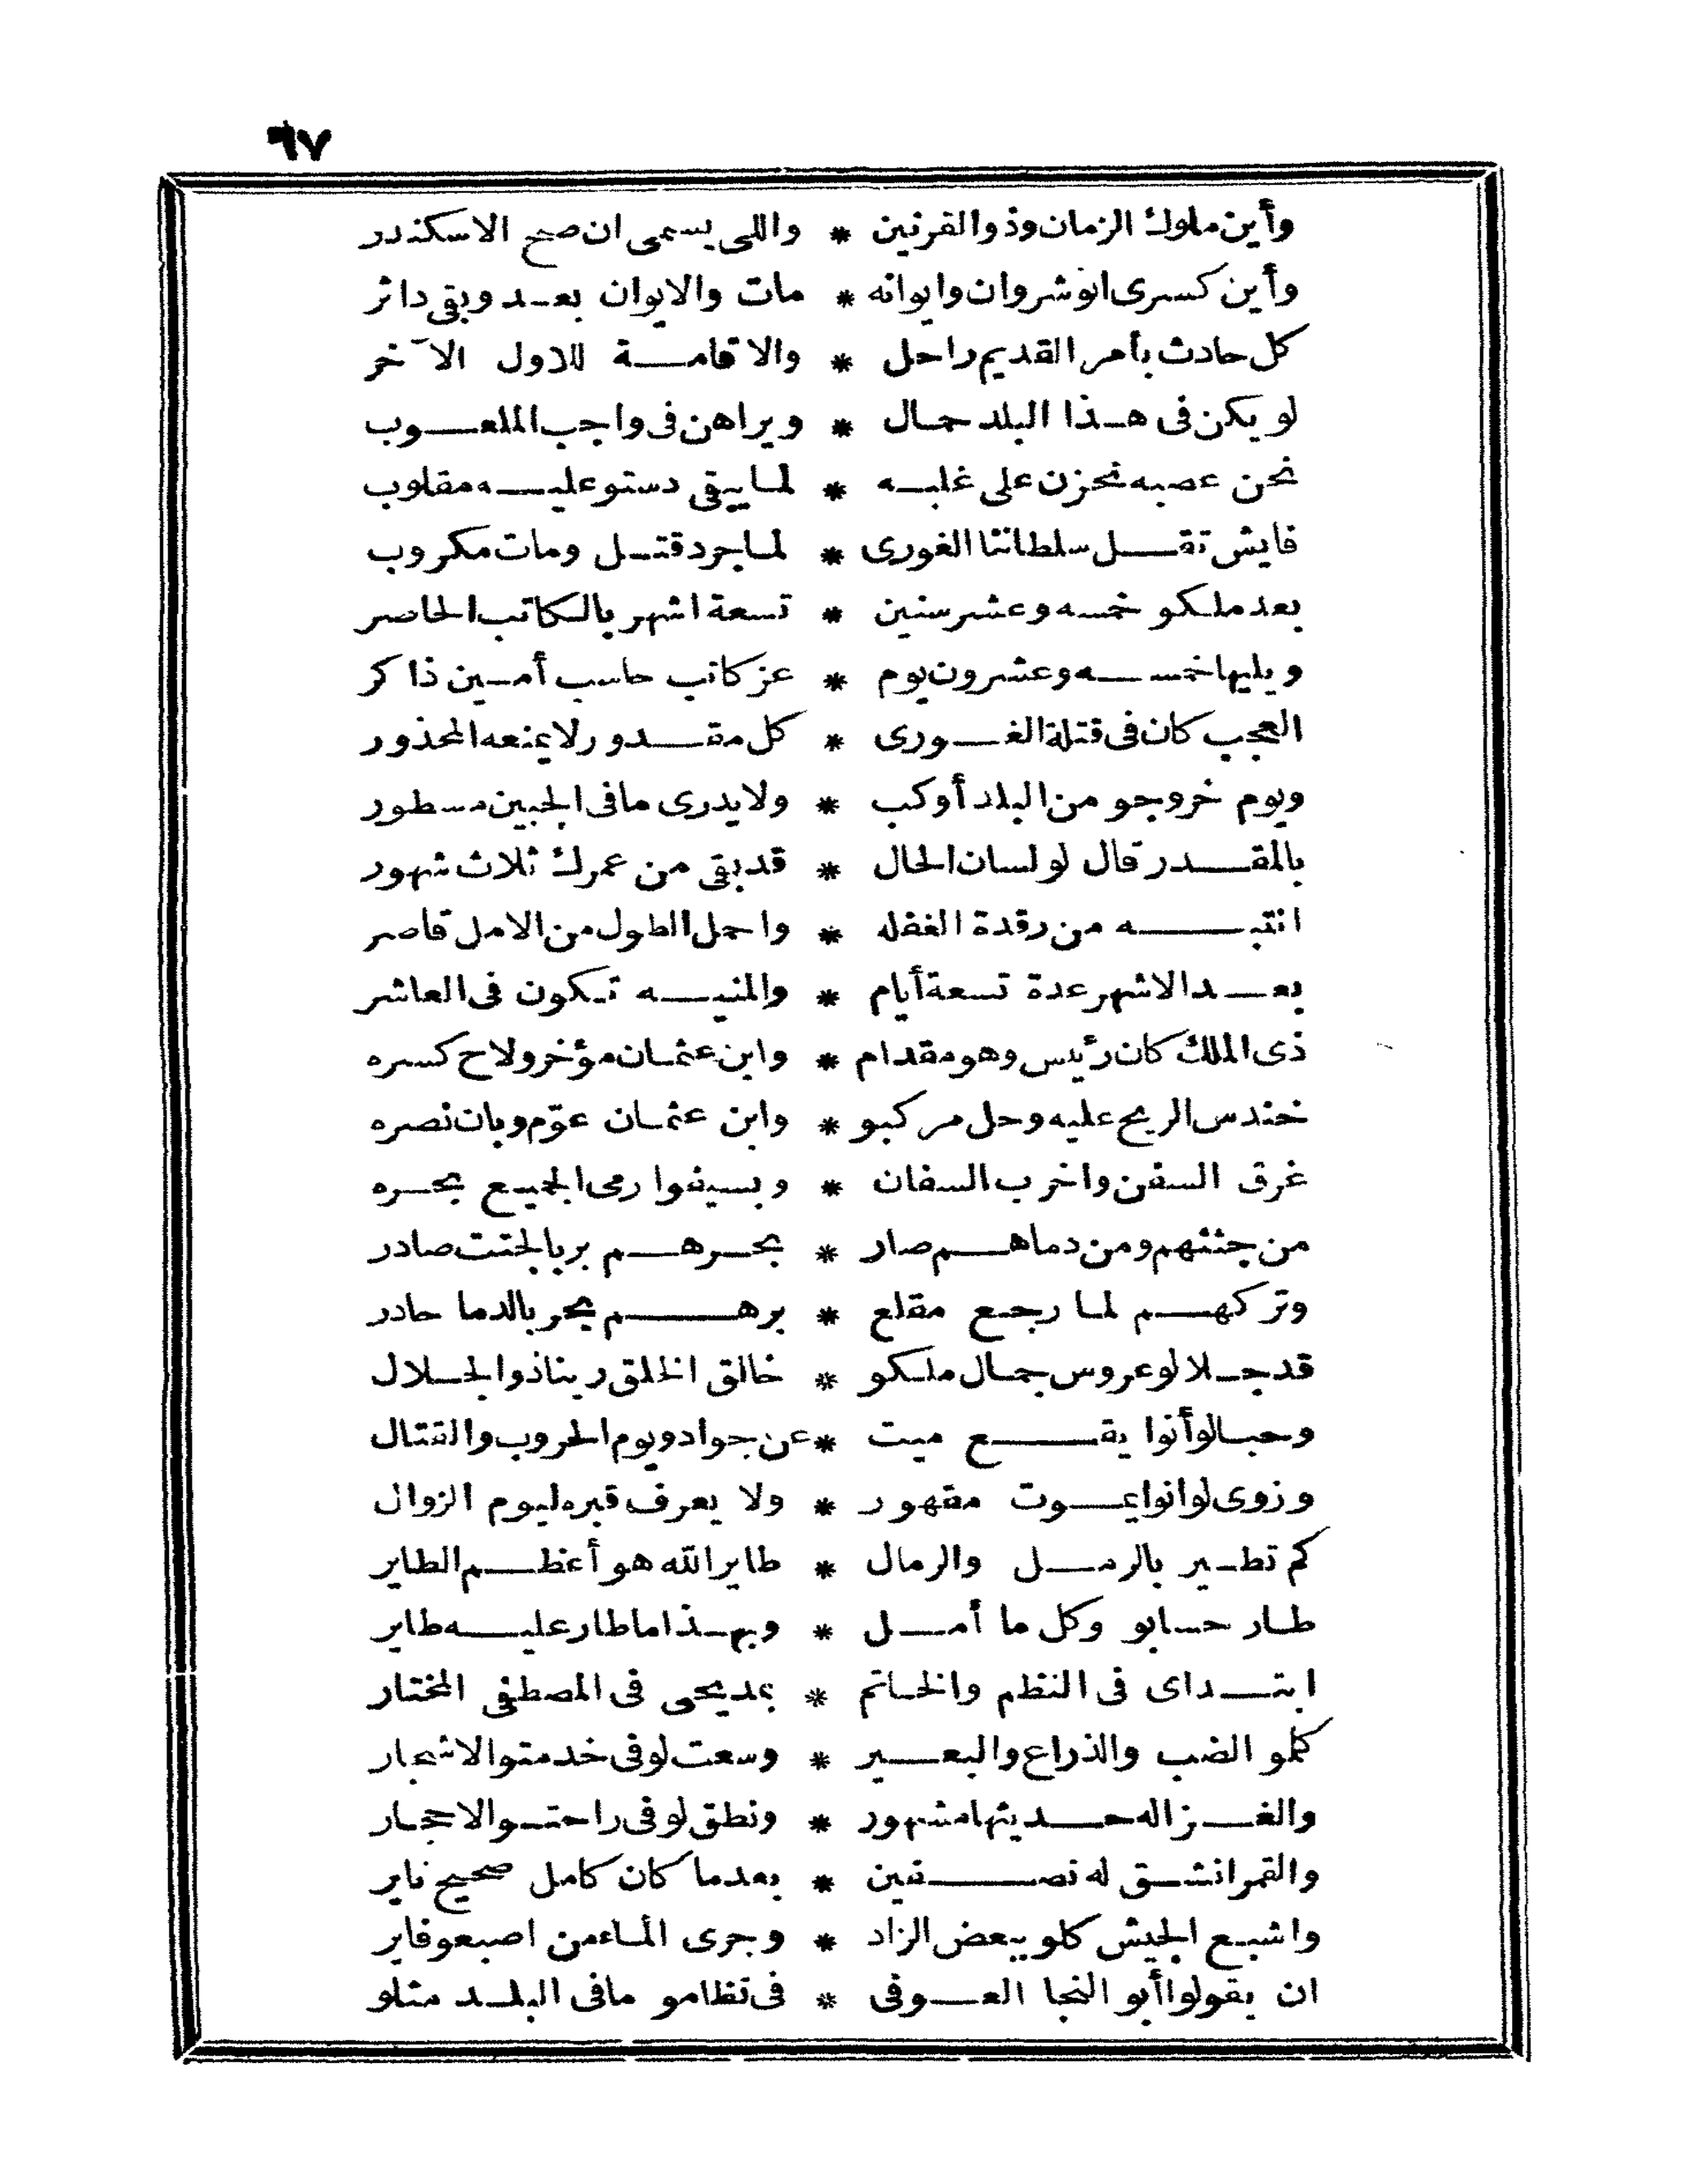 ٦٧
وأين ملوك الزمان وذو القرنين * واللى يسمى ان صح الاسكندر
وأين كسرى انوشروان وايوانه * مات والايوان بعد وبقى داثر
كل حادث بأمر القديم راحل * والاقامة للاول الآخر
لو يكن فى هذا البلد حمال * ويراهن فى واجب الملعوب
نحن عصبه نحزن على غلبه * لما يبقى دستو عليه مقلوب
فايش تقل سلطاننا الغورى * لما جرد قتل ومات مكروب
بعد ملكو خمسه وعشر سنين * تسعة اشهر بالكاتب الحاصر
ويليها خمسه وعشرون يوم * عز كاتب حاسب أمين ذاكر
العجب كان فى قتلة الغورى * كل مقدور لا يمنعه المحذور
ويوم خروجو من البلد أوكب * ولا يدرى ما فى الجبين مسطور
بالمقدر قال لو لسان الحال * قد بقى من عمرك ثلاث شهور
انتبه من رقدة الغفله * واجمل الطول من الامل قاصر
بعد الاشهر عدة تسعة أيام * والمنيه تكون فى العاشر
ذى الملك كان رئيس وهو مقدام * وابن عثمان مؤخر ولاح كسره
خندس الريح عليه وحل مركبو * وابن عثمان عوّم وبان نصره
غرق السفن واخرب السفان * وبسيفوا رمى الجميع بحره
من جثثهم ومن دماهم صار * بحرهم بر بالجثت صادر
وتركهم لما رجع مقلع * برهم بحر بالدما حادر
قد جلا لو عروس جمال ملكو * خالق الخلق ربنا ذوالجلال
وحبالو أنوا يقع ميت * عن جوادو يوم الحروب والقتال
وزوى لو انوا يموت مقهور * ولا يعرف قبره ليوم الزوال
كم تطير بالرمل والرمال * طاير الله هو أعظم الطاير
طار حسابو وكل ما أمل * وبهذا ما طار عليه طاير
ابتداى فى النظم والخاتم * بمديحى فى المصطفى المختار
كلمو الضب والذراع والبعير * وسعت لو فى خدمتو الاشجار
والغزاله حديثها مشهور * ونطق لو فى راحتو الاحجار
والقمر انشق له نصفين * بعدما كان كامل صحيح ناير
واشبع الجيش كلو ببعض الزاد * وجرى الماء من اصبعو فاير
ان يقولوا أبو النجا العوفى * فى نظامو ما فى البلد مثلو